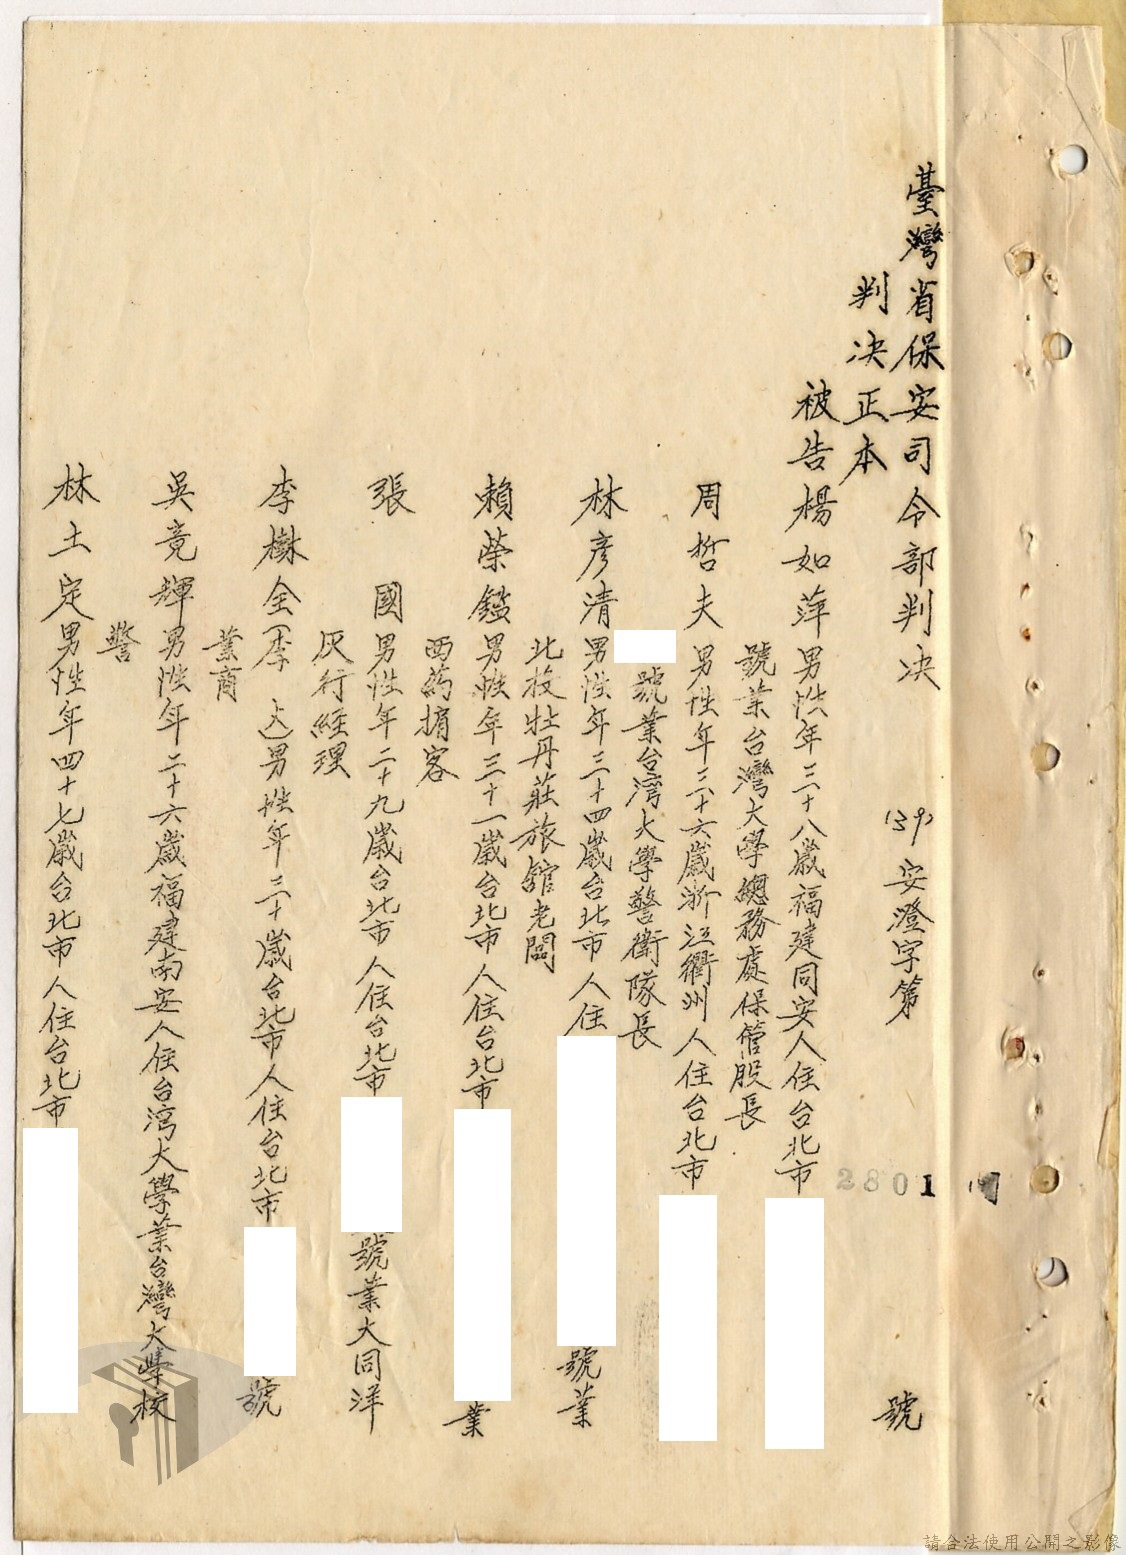 臺灣省保安司令部判决 (39)安澄字第 2801 號
判决正本
被告楊如萍男性年三十八歲福建同安人住台北市
號業台灣大學總務處保管股長
周哲夫男性年三十六歲浙江衢州人住台北市
號業台湾大學警衛隊長
林彥清男性年三十四歲台北市人住 號業
北投牡丹莊旅館老闆
賴荣鑑男性年三十一歲台北市人住台北市 業
西葯掮客
張國男性年二十九歲台北市人住台北市 號業大同洋
灰行經理
李樹全(李 )男性年三十歲台北市人住台北市 號
業商
吳竟輝男性年二十六歲福建南安人住台湾大學業台灣大學校
警
林土定男性年四十七歲台北市人住台北市
請合法使用公開之影像